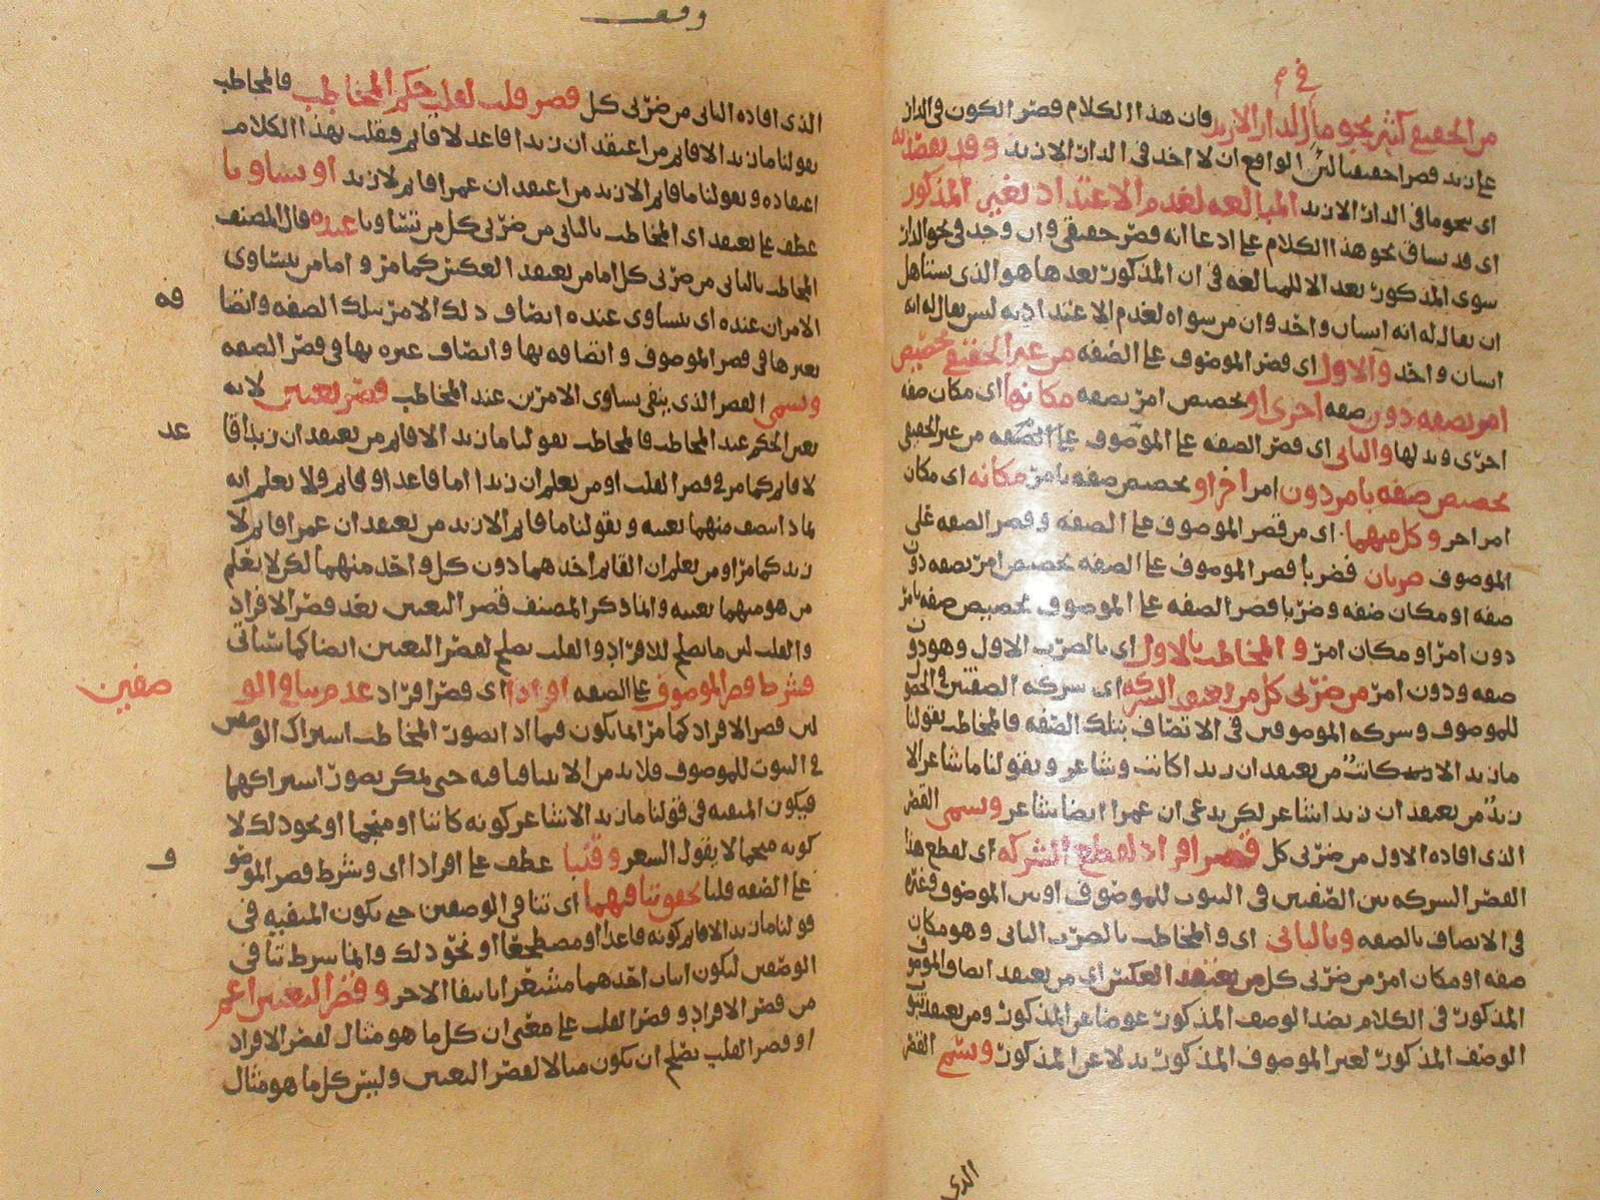 في م
من الحقيقي كثير نحو ما في الدار الا زيد فان هذا الكلام قصر الكون في الدار
على زيد قصرا حقيقيا لكن الواقع ان لا احد في الدار الا زيد وقد يقصد به
اي بنحو ما في الدار الا زيد المبالغه لعدم الاعتداد بغير المذكور
اي قد يساق نحو هذا الكلام على ادعا انه قصر حقيقي وان وجد في نحو الدار
سوى المذكور بعد الا للمبالغه في ان المذكور بعدها هو الذي يستاهل
ان يقال له انه انسان واحد وان من سواه لعدم الاعتداد به ليس يقال له انه
انسان واحد والاول اي قصر الموصوف على الصفه من غير الحقيقي تخصيص
امر بصفه دون صفه اخرى او تخصيص امر بصفه مكانها اي مكان صفه
اخرى وبدلها والثاني اي قصر الصفه على الموصوف على الصفه من غير الحقيقي
تخصيص صفه بامر دون امر اخر او تخصيص صفه بامر مكانه اي مكان
امر اخر وكل منهما اي من قصر الموصوف على الصفه وقصر الصفه على
الموصوف ضربان فضربا قصر الموصوف على الصفه تخصيص امر بصفه دون
صفه او مكان صفه وضربا قصر الصفه على الموصوف تخصيص صفه بامر
دون امر او مكان امر والمخاطب بالاول اي بالضرب الاول وهو دون
صفه ودون امر من ضربي كل من يعتقد الشركه اي شركه الصفتين في
للموصوف وشركه الموصوفين في الاتصاف بتلك الصفه فالمخاطب بقولنا
ما زيد الا كاتب من يعتقد ان زيدا كاتب وشاعر وبقولنا ما شاعر الا
زيد من يعتقد ان زيدا شاعر لكن يدعي ان عمرا ايضا شاعر ويسمى القصر
الذي افاده الاول من ضربي كل قصر افراد لقطع الشركه اي لقطع هذا
القصر الشركه بين الصفتين في الثبوت للموصوف او بين الموصوف وغيره
في الاتصاف بالصفه وبالثاني اي والمخاطب بالضرب الثاني وهو مكان
صفه او مكان امر من ضربي كل من يعتقد العكس اي من يعتقد اتصاف الموصوف
المذكور في الكلام بضد الوصف المذكور عوضا عن المذكور ومن يعتقد ثبوت
الوصف المذكور لغير الموصوف المذكور بدلا عن المذكور ويسمى القصر
الذي
وقف
الذي افاده الثاني من ضربي كل قصر قلب لقلب حكم المخاطب فالمخاطب
بقولنا ما زيد الا قائم من اعتقد ان زيدا قاعد لا قائم فقلب بهذا الكلام
اعتقاده وبقولنا ما قائم الا زيد من اعتقد ان عمرا قائم لا زيد او تساويا
عطف على يعتقد اي المخاطب بالثاني من ضربي كل من تساويا عنده قال المصنف
المخاطب بالثاني من ضربي كل اما من يعتقد العكس كما مر واما من يتساوى
الامران عنده اي يتساوى عنده اتصاف ذلك الامر بتلك الصفه واتصا
فه
بغيرها في قصر الموصوف واتصافه بها واتصاف غيره بها في قصر الصفه
ويسمى القصر الذي ينفي تساوي الامرين عند المخاطب قصر تعيين لانه
يعين الحكم عند المخاطب فالمخاطب بقولنا ما زيد الا قائم من يعتقد ان زيدا قا
عد
لا قائم كما مر في قصر القلب او من يعلم ان زيدا اما قاعد او قائم ولا يعلم انه
بماذا اتصف منهما بعينه وبقولنا ما قائم الا زيد من يعتقد ان عمرا قائم لا
زيد كما مر او من يعلم ان القائم احدهما دون كل واحد منهما لكن لا يعلم
من هو منهما بعينه وانما ذكر المصنف قصر التعيين بعد قصر الافراد
والقلب لان ما يصلح للافراد والقلب يصلح لقصر التعيين ايضا كما سياتي
وشرط قصر الموصوف على الصفه افرادا اي قصر افراد عدم تنافي الو
صفين
لان قصر الافراد كما مر انما يكون فيما اذا تصور المخاطب اشتراك الوصفين
في الثبوت للموصوف فلا بد من الا يتنافيا فيه حتى يمكن تصور اشتراكهما
فيكون المنفيه في قولنا ما زيد الا شاعر كونه كاتبا او منجما او نحو ذلك لا
كونه مفحما لا يقول الشعر وقلبا عطف على افرادا اي وشرط قصر الموصو
و
على الصفه قلبا تحقق تنافيهما اي تنافي الوصفين حتى يكون المنفيه في
قولنا ما زيد الا قائم كونه قاعدا او مضطجعا او نحو ذلك وانما شرط تنافي
الوصفين ليكون اثبات احدهما مشعرا بانتفا الاخر وقصر التعيين اعم
من قصر الافراد وقصر القلب على معنى ان كل ما هو مثال لقصر الافراد
او قصر القلب يصلح ان يكون مثالا لقصر التعيين وليس كل ما هو مثال